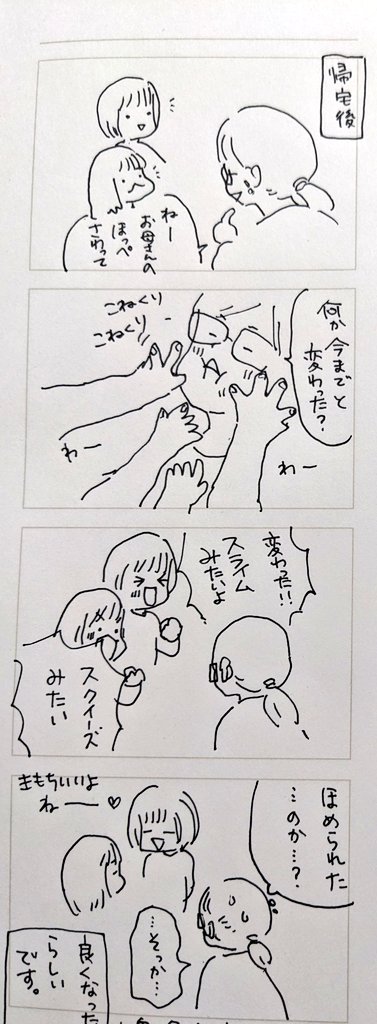 帰宅後
ねー
お母さんの
ほっぺ
さわって
何か今までと
変わった?
こねくり
こねくり
わー
わー
変わった!!
スライム
みたいよ
スクイーズ
みたい
ほめられた
…のか…?
きもちいいよ
ねー♡
…そっか…
良くなった
らしい
です。